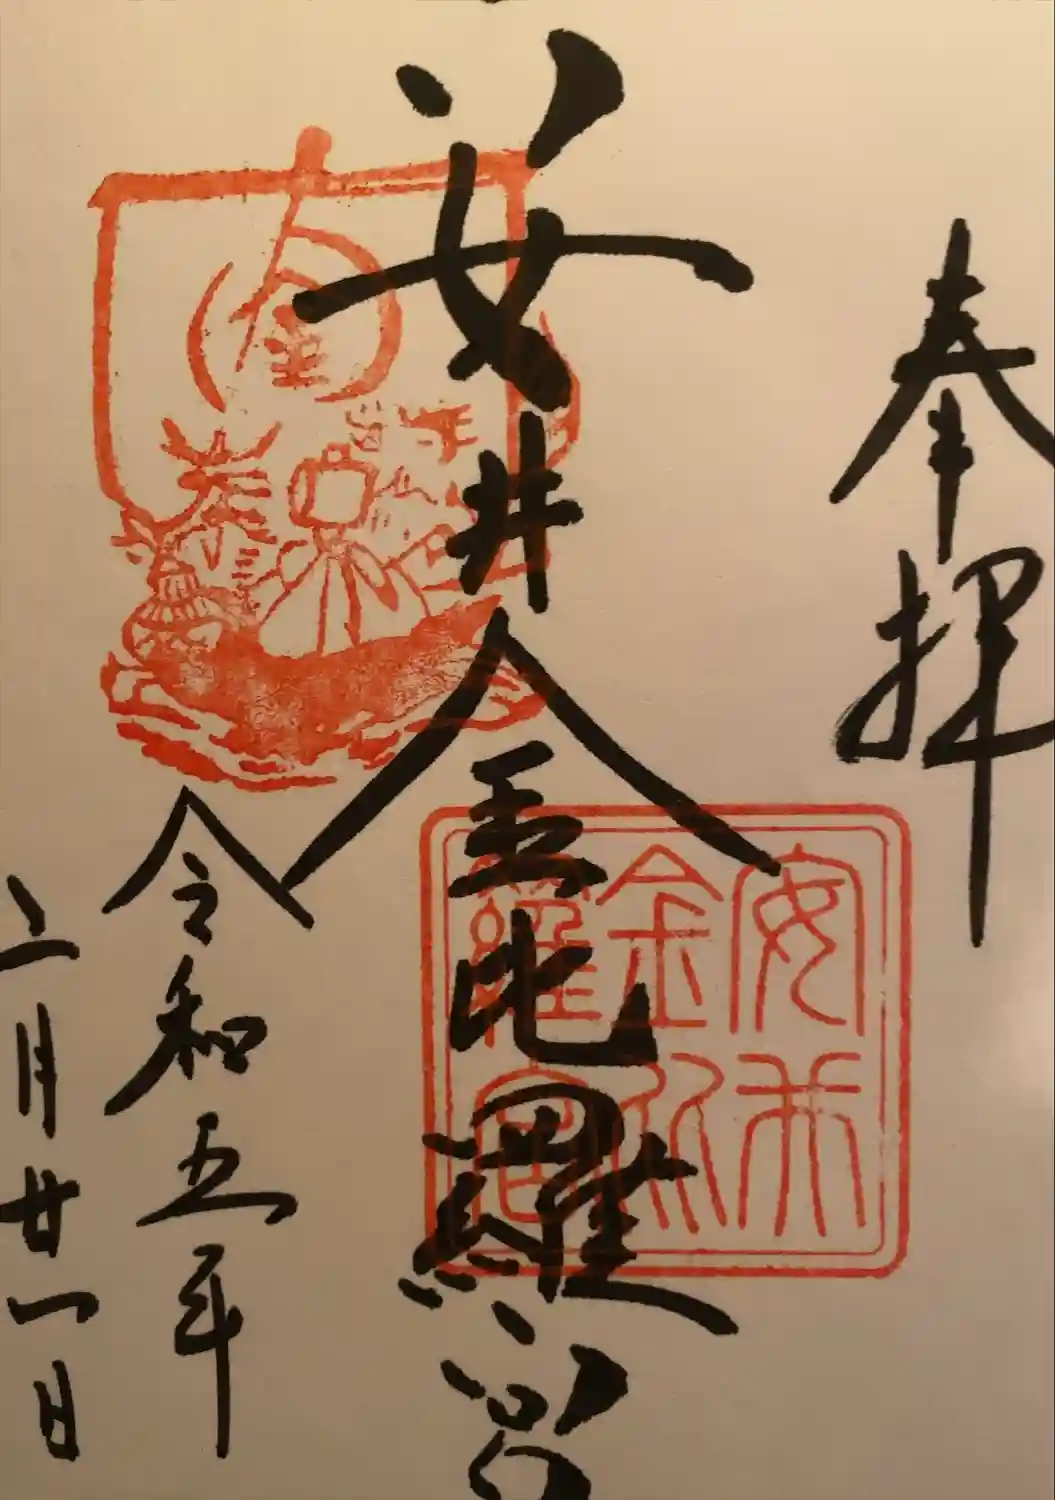 奉拝
安井金比羅宮
令和五年
月廿一日
安井
金比
羅宮
金